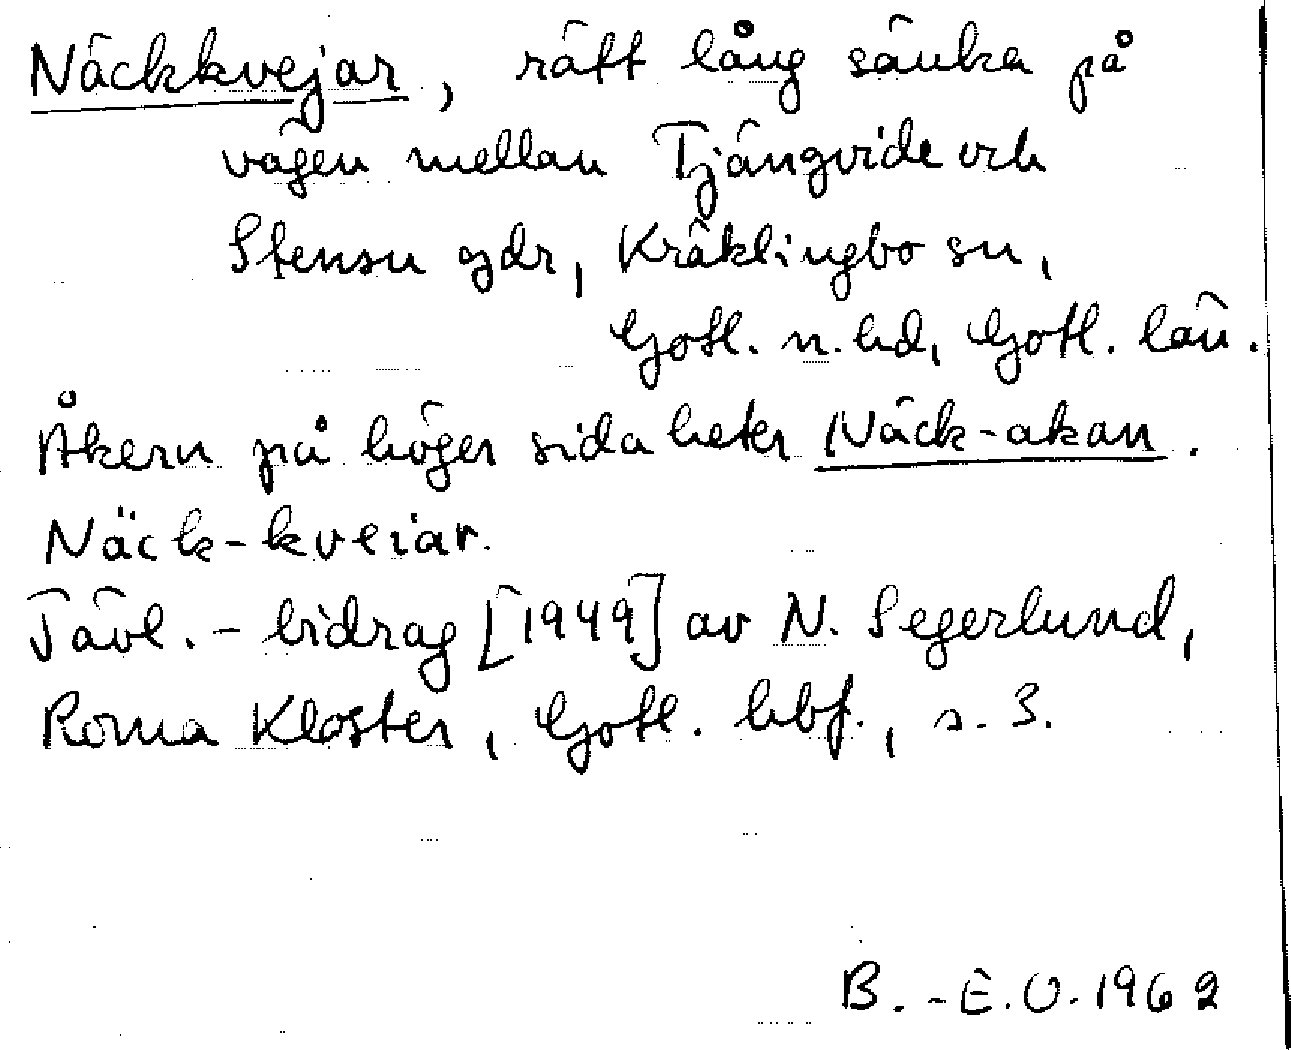 Näckkvejar, rätt lång sänka på
vägen mellan Tjängvide och
Stensu gdr, Kräklingbo sn,
Gotl. n. hd, Gotl. län.
Åkern på höger sida heter Näck-akan.
Näck-kveiar.
Tävl.-bidrag [1949] av N. Segerlund,
Roma Kloster, Gotl. hbf., s. 3.
B.-E.O. 1962